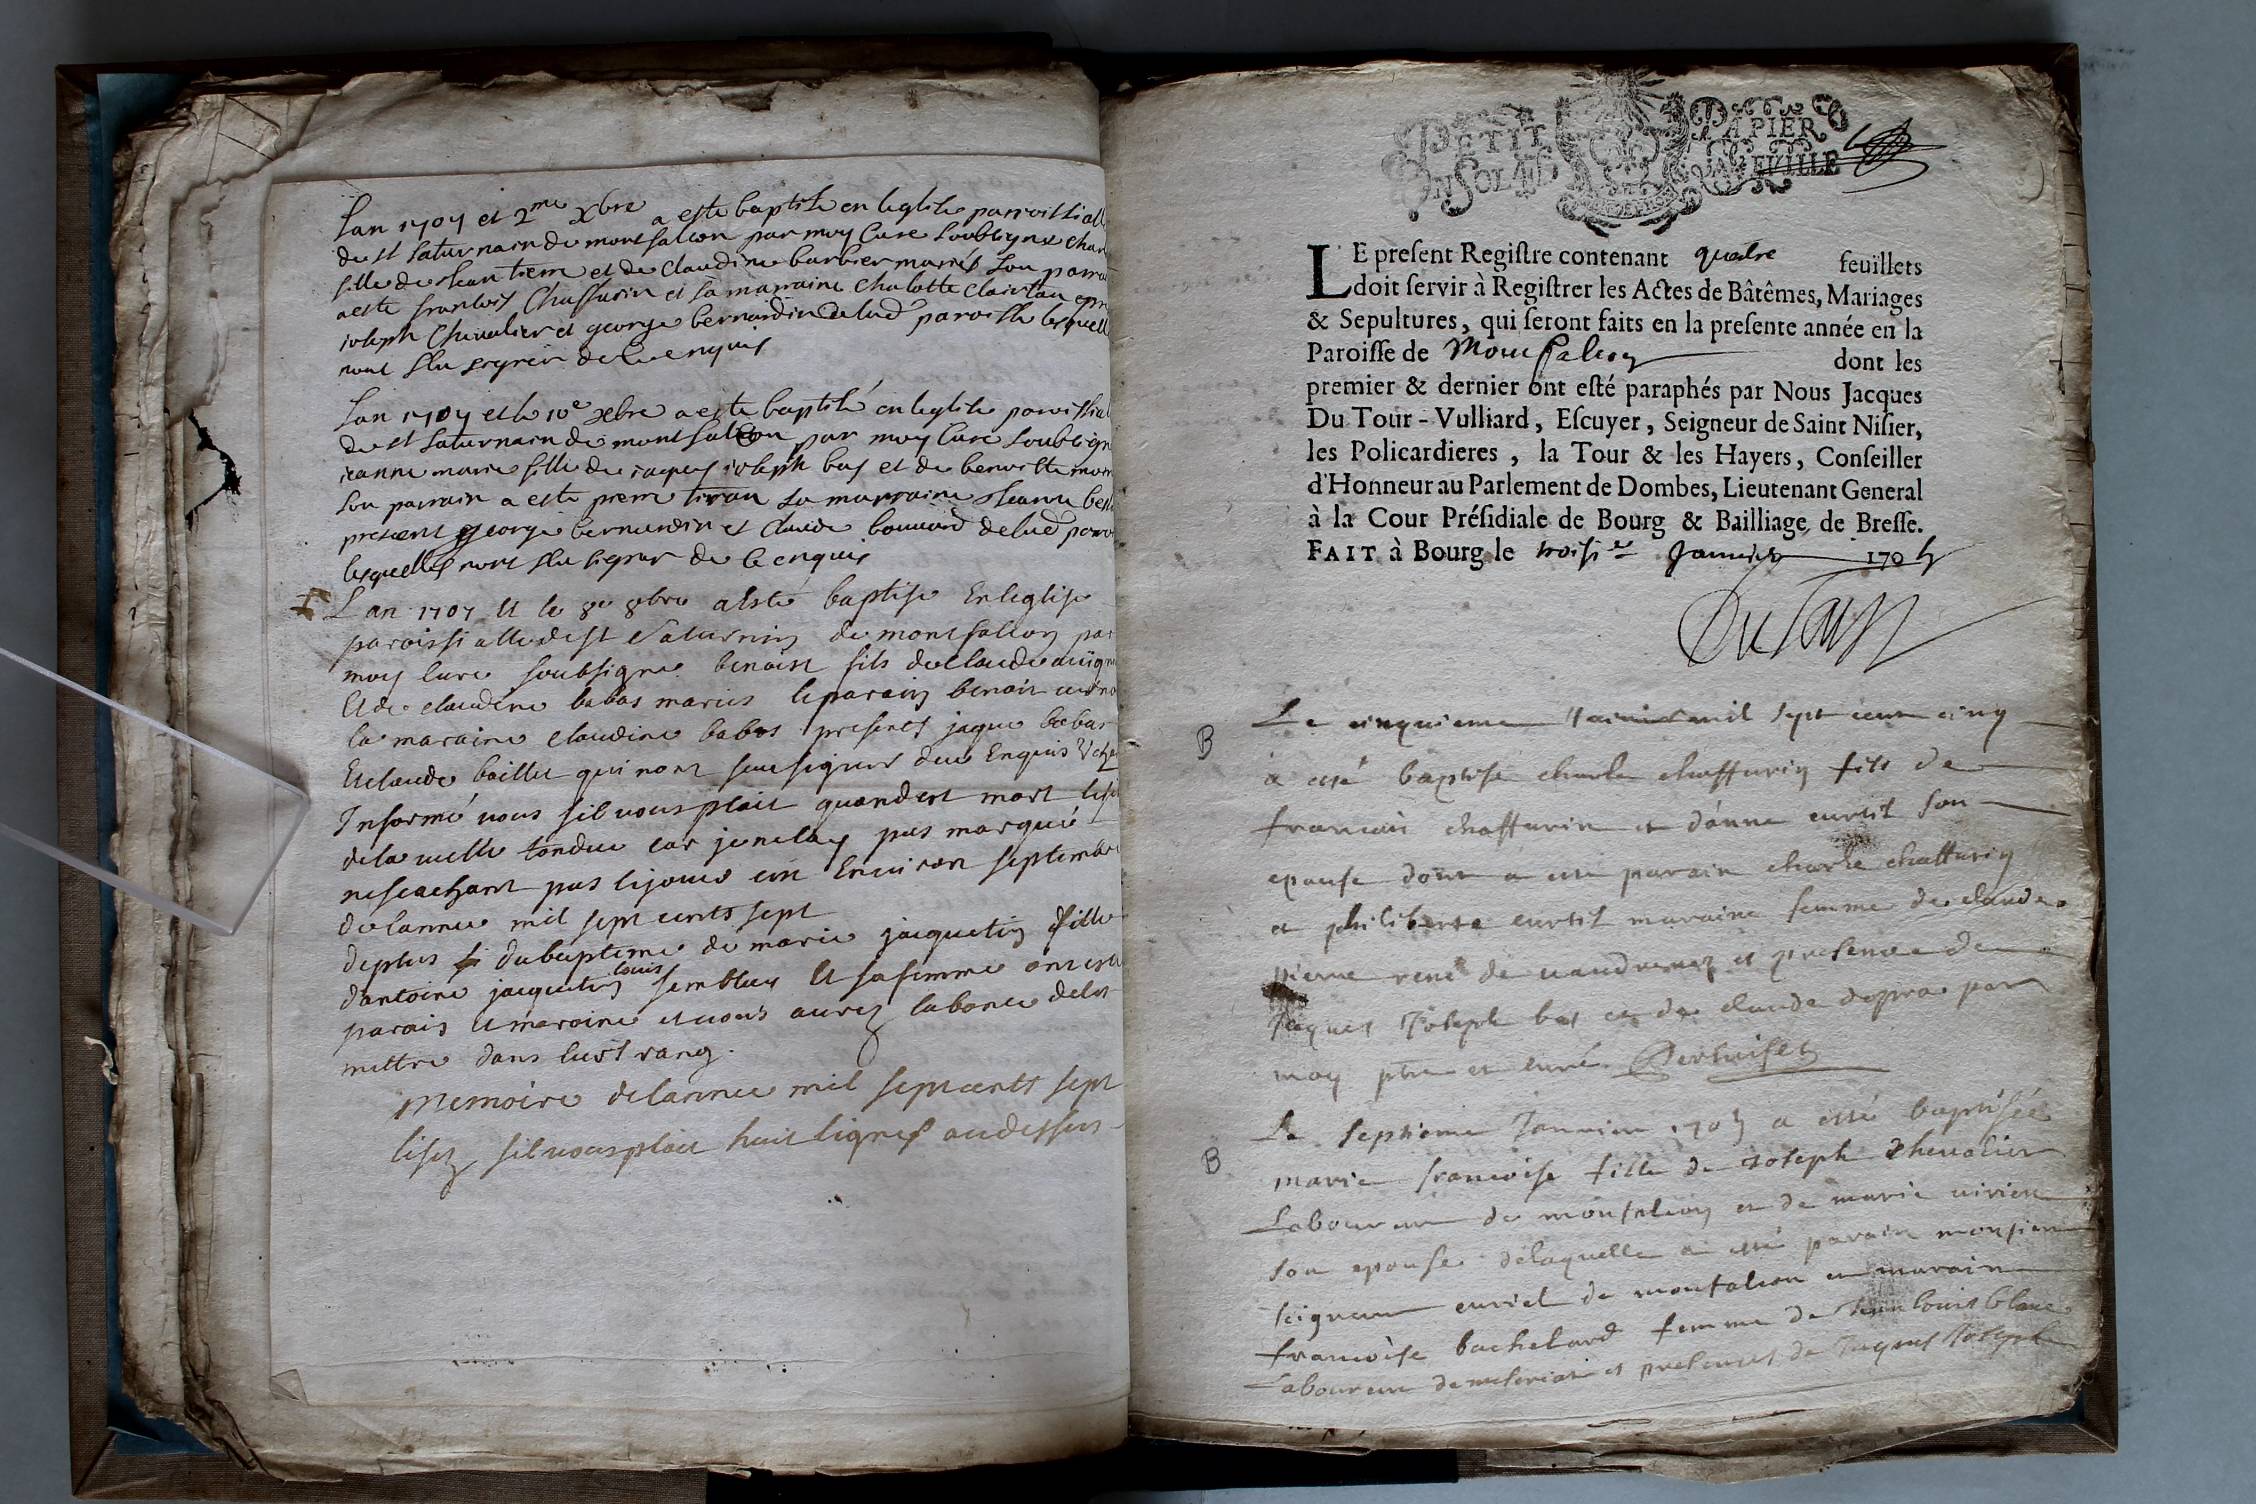 Lan 1707 et 2me xbre a este baptisé en leglise parroissiall
de st saturnain de montfalcon par moy Curé soubsigné
fille de Jean et de Claudine barbier mariés son parrai
a esté francois Chaffurin et sa marraine Charlotte
joseph Chevalier et george bernardin delad. paroisse lesquell
nont sçu signer de ce enquis
Lan 1707 et le 10e xbre a este baptisé en leglise paroissial
de st saturnain de montfalcon par moy Curé soubsign
jeanne marie fille de jaques joseph bas et de benoitte
son parrain a este la marraine Jeanne
present george bernardin et Claude bouuard delad. paroi
lesquelles nont sçu signer de ce enquis
Lan 1707 et le 8e 8bre a esté baptise En leglise
paroissialle de st Saturnin de montfalcon par
moy Curé soubsigné benoist fils de claude
Et de claudine babas mariés le parain benoit
la maraine claudine babas presents jaque babas
Et claude baillet qui nont sceu signer de ce Enquis
Informé vous sil vous plait quand est mort
de la vielle tondue car je ne lay pas marqué
ne scachant pas le jour Environ septembre
de lannée mil sept cents sept
de plus du bapteme de marie jacquetin fille
dantoine jacquetin louis semblay Et sa femme ont esté
parain Et maraine et vous aurez la bonté de les
mettre dans leur rang.
Memoire de lannee mil sept cents sept
lisez sil vous plait huit lignes au dessus
PETIT PAPIER
UN SOL LA FEUILLE
LE present Registre contenant quatre feuillets
doit servir à Registrer les Actes de Bâtêmes, Mariages
& Sepultures, qui seront faits en la presente année en la
Paroisse de Montfalcon dont les
premier & dernier ont esté paraphés par Nous Jacques
Du Tour-Vulliard, Escuyer, Seigneur de Saint Nisier,
les Policardieres, la Tour & les Hayers, Conseiller
d'Honneur au Parlement de Dombes, Lieutenant General
à la Cour Présidiale de Bourg & Bailliage de Bresse.
FAIT à Bourg le troisie Janvier 1705
DuTour
B
Le cinquieme Janvier mil sept cent cinq
a esté baptise charle chaffurin fils de
francois chaffurin et danne curtil son
epouse dont a esté parain charle chaffurin
et philiberte curtil maraine femme de claude
pierre rené de et presence de
Jaques Joseph bas et de claude depra par
moy ptre et curé
B
Le septieme Janvier 1705 a esté baptisée
marie francoise fille de Joseph chevalier
Laboureur de montfalcon et de marie
son epouse de laquelle a esté parain monsieur
seigneur curial de montfalcon et maraine
francoise bachelard femme de Jean louis blanc
Laboureur de et presences de Jaques Joseph